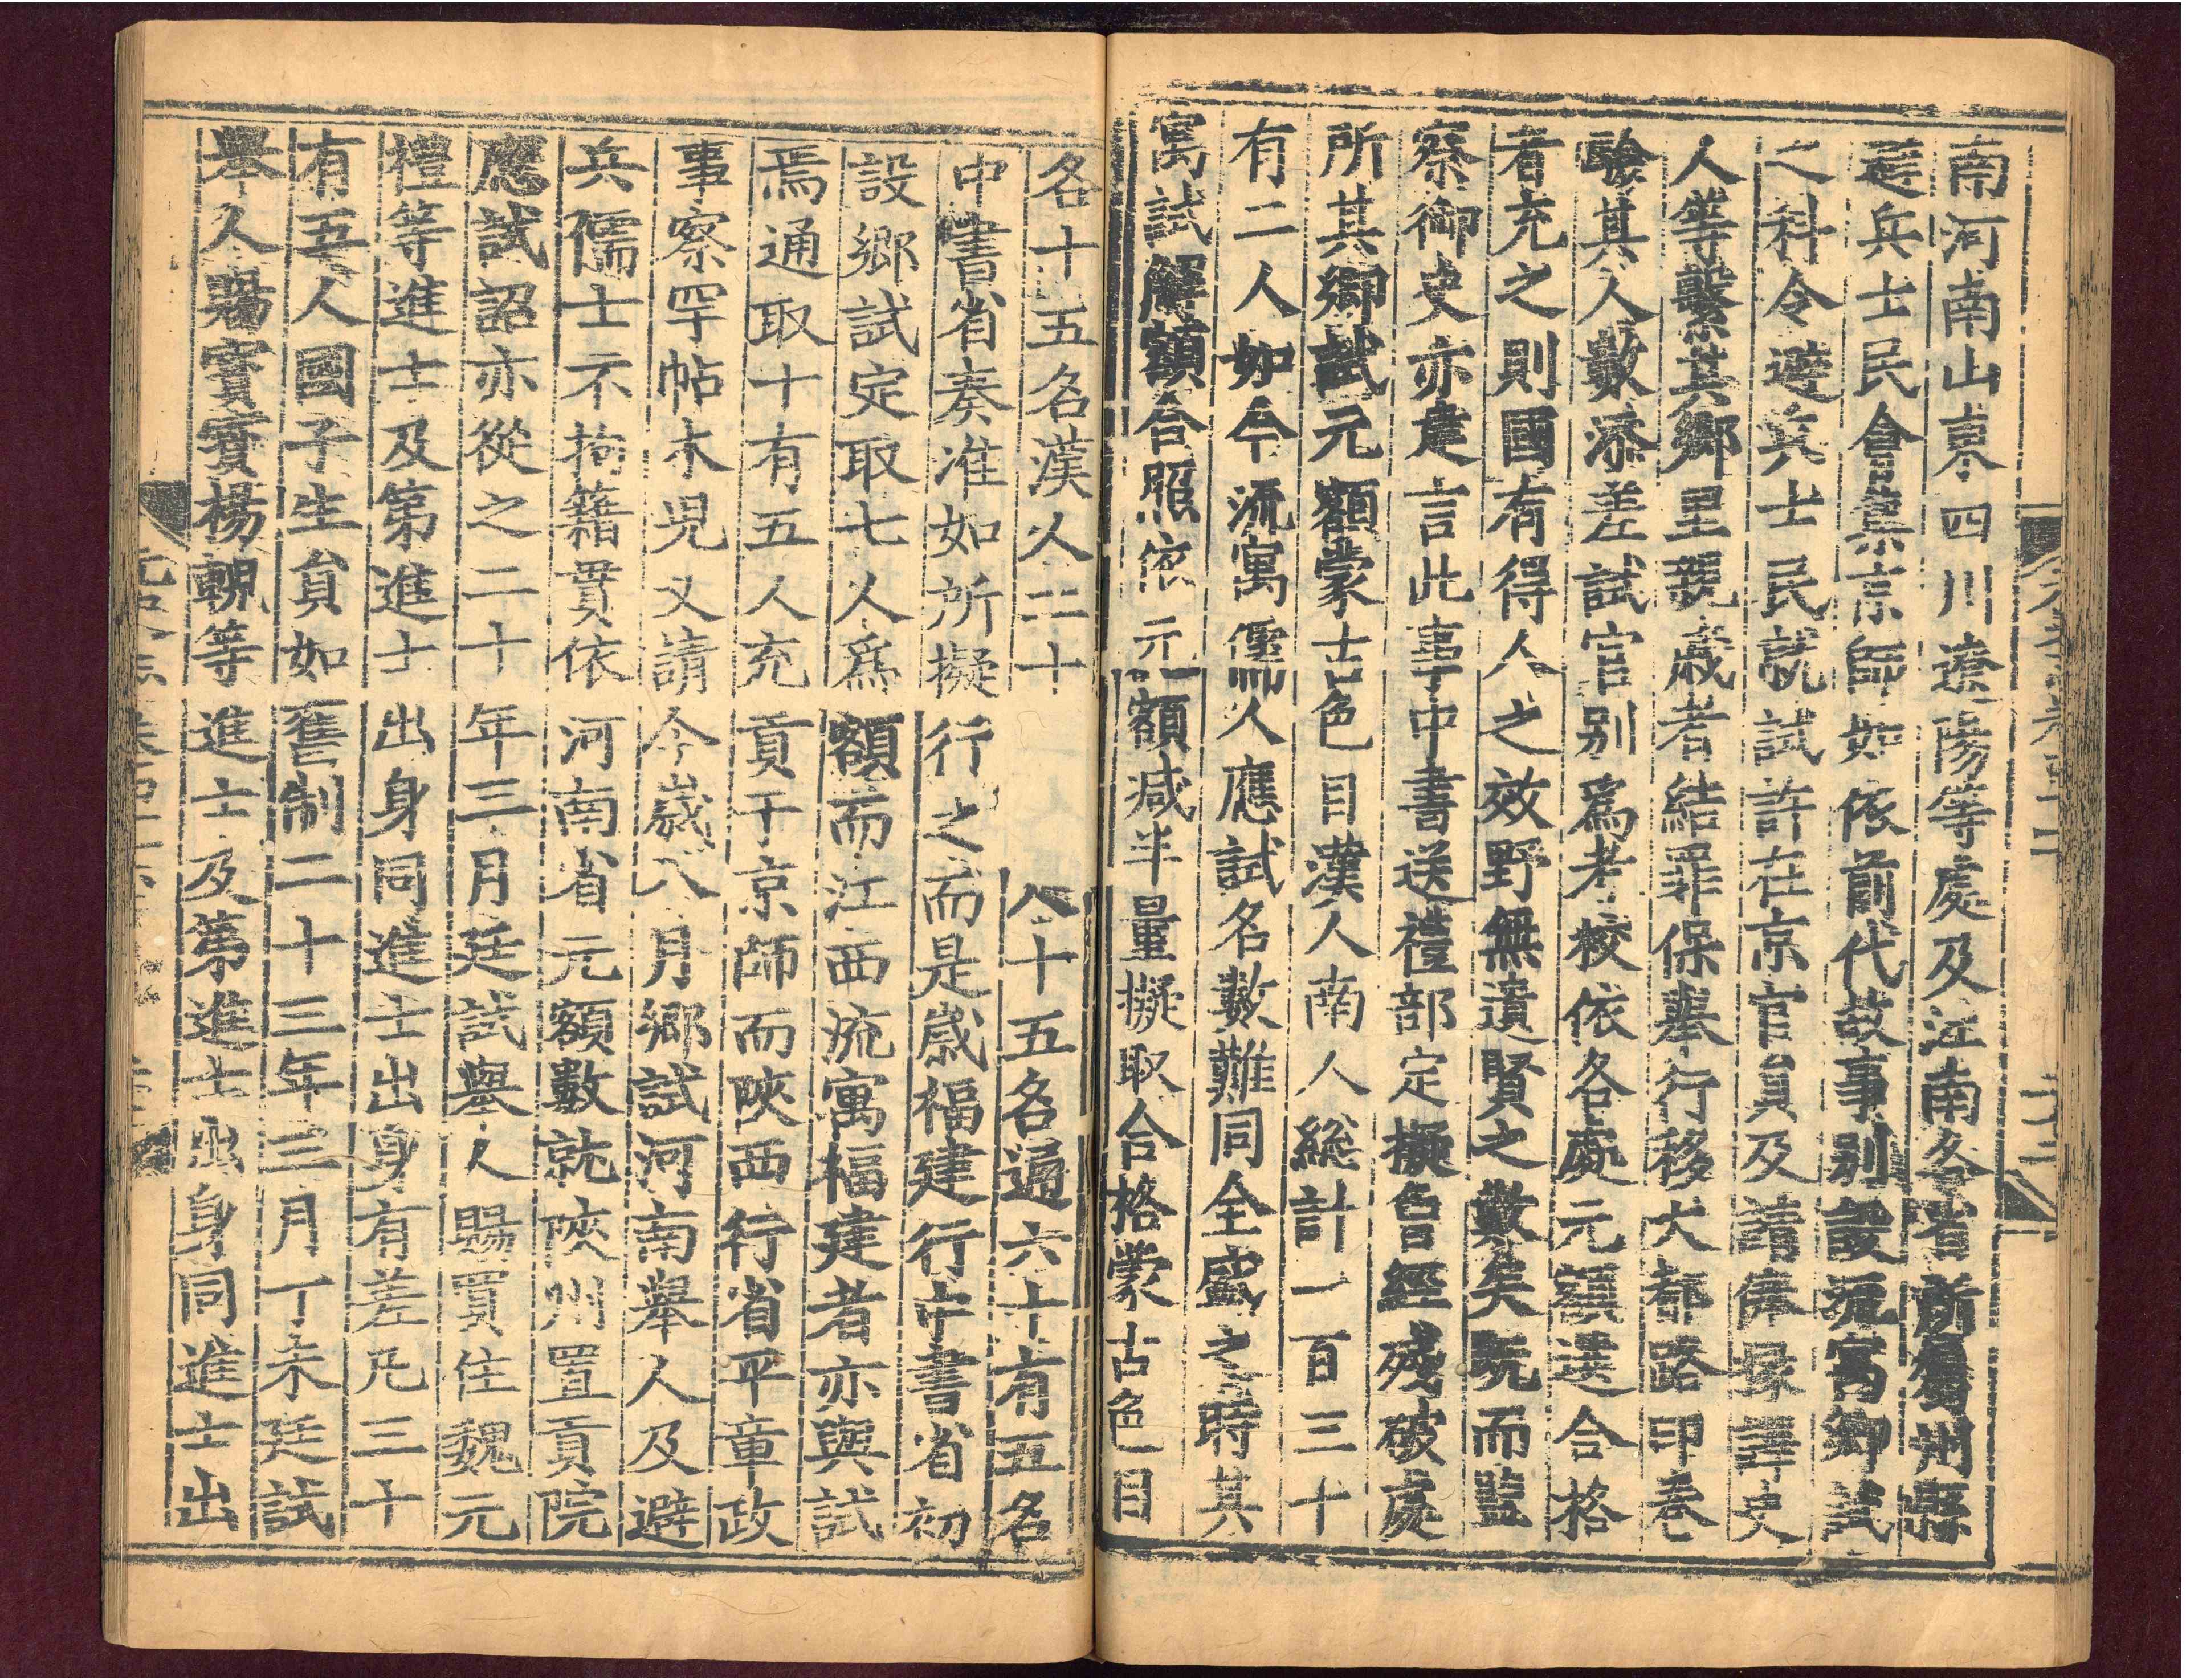 南河南山東四川遼陽等處及江南各省所屬州縣
避兵士民會集京師如依前代故事別設流寓鄉試
之科令避兵士民就試許在京官員及請俸掾譯史
人等繫其鄉里親戚者結罪保舉行移大都路印卷
驗其人數添差試官別爲考校依各處元額選合格
者充之則國有得人之效野無遺賢之歎矣旣而監
察御史亦建言此事中書送禮部定擬曾經殘破處
所其鄉試元額蒙古色目漢人南人總計一百三十
有二人如今流寓儒人應試名數難同全盛之時其
寓試解額合照依元額減半量擬取合格蒙古色目
各十五名漢人二十 人十五名通六十有五名
中書省奏准如所擬行之而是歲福建行中書省初
設鄉試定取七人爲額而江西流寓福建者亦與試
焉通取十有五人充貢于京師而陝西行省平章政
事察罕帖木兒又請今歲八月鄉試河南舉人及避
兵儒士不拘籍貫依河南省元額數就陝州置貢院
應試詔亦從之二十年三月廷試舉人賜買住魏元
禮等進士及第進士出身同進士出身有差凡三十
有五人國子生員如舊制二十三年三月丁未廷試
舉人賜寶寶楊輗等進士及第進士出身同進士出